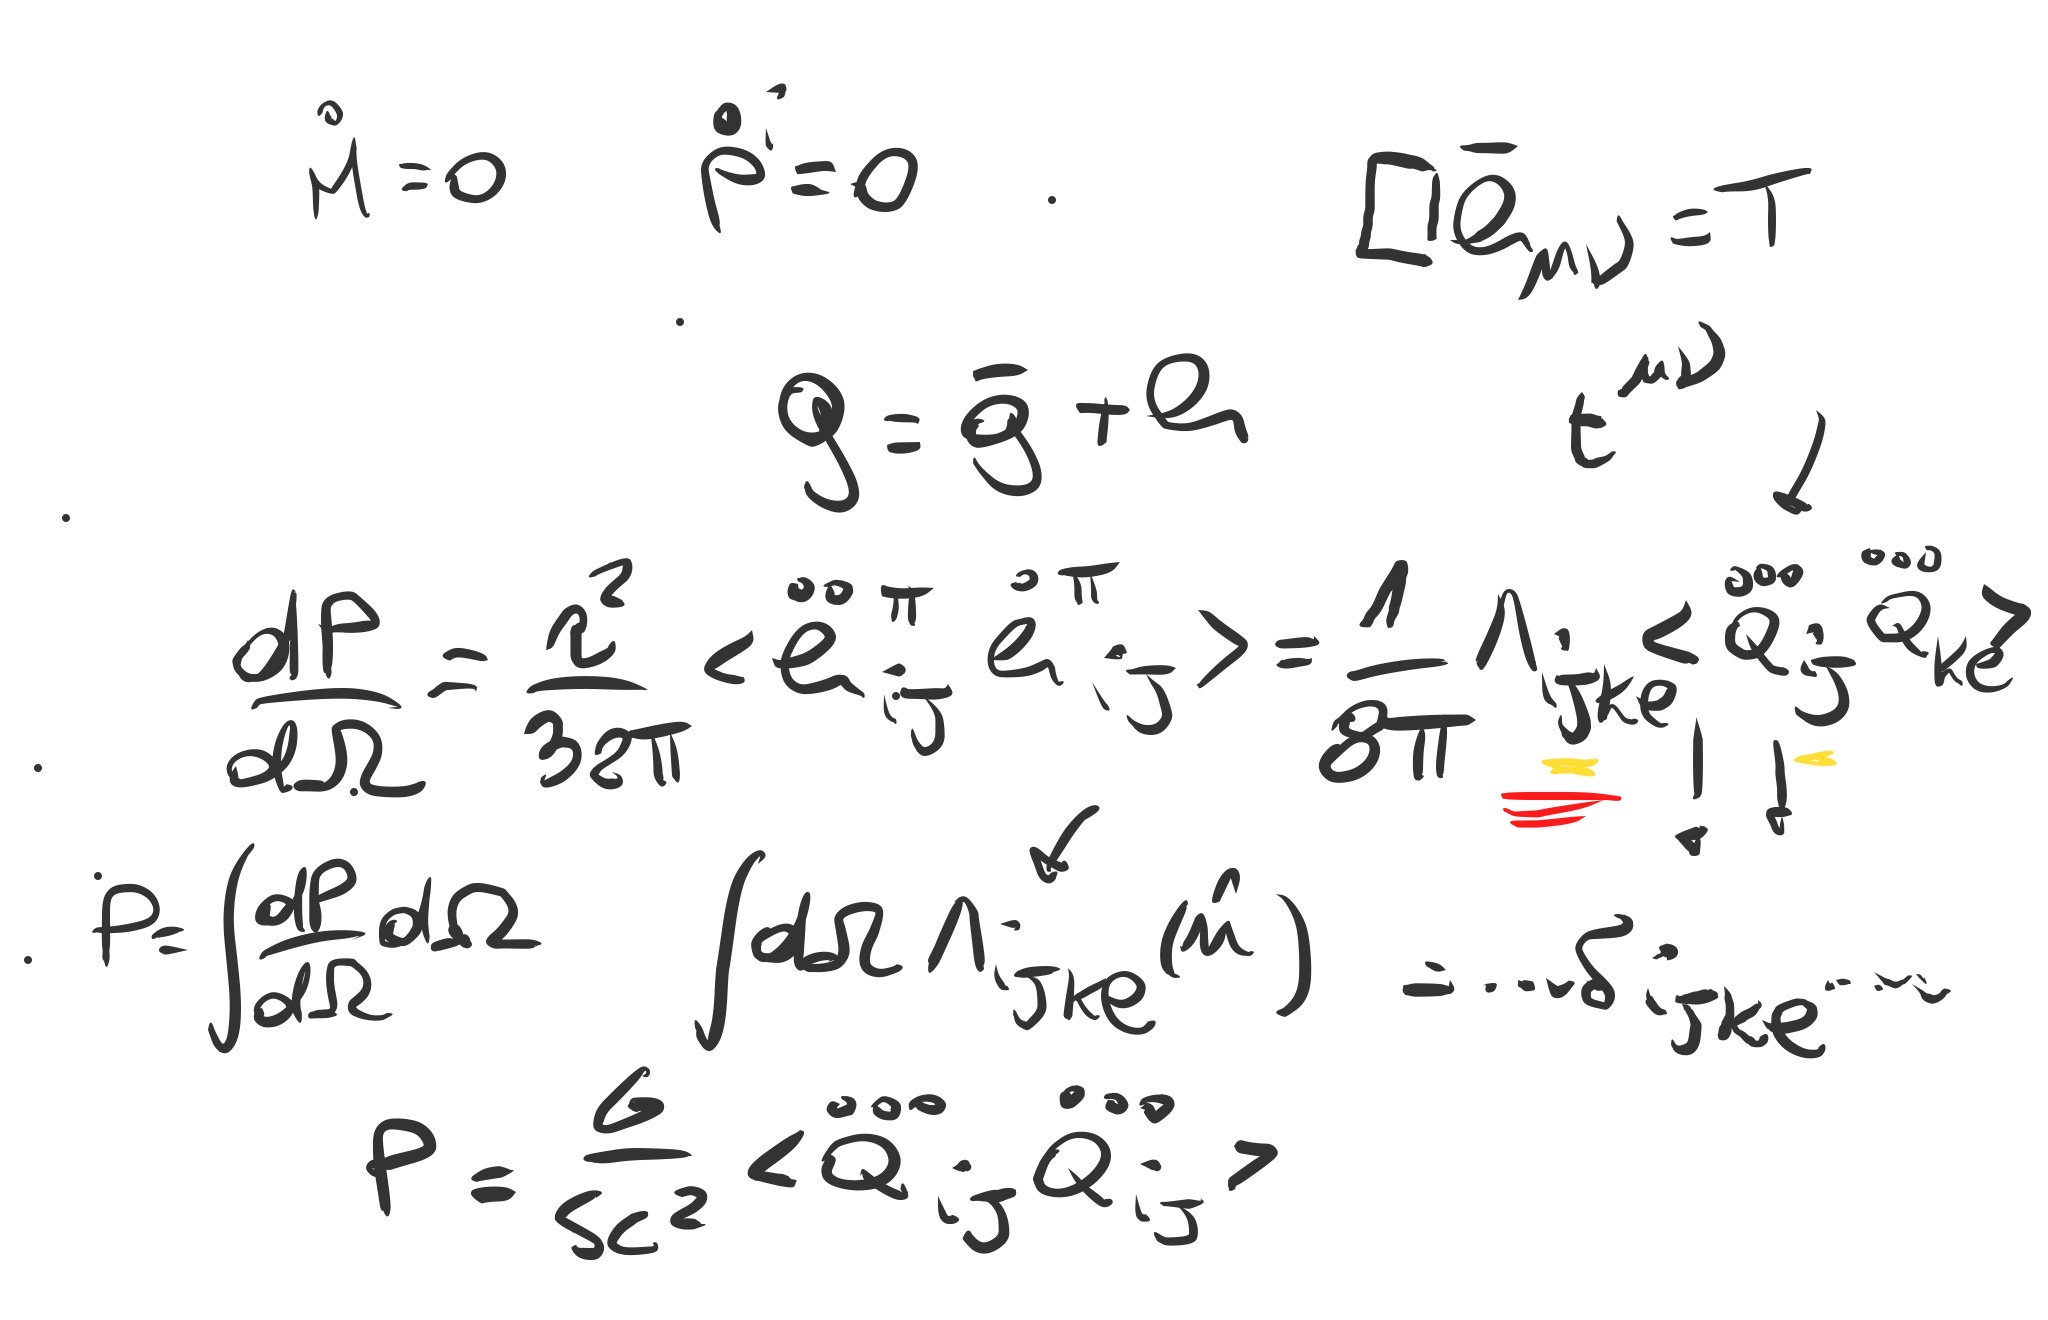 Ṁ = 0 Ṗⁱ = 0 □ h̄_μν = T
g = ḡ + h t^μν
dP/dΩ = r²/32π < ḧ^TT_ij ḣ^TT_ij > = 1/8π Λ_ijkl < Q⃛_ij Q⃛_kl >
P = ∫ dP/dΩ dΩ ∫ dΩ Λ_ijkl (n̂) = ... δ_ijkl ...
P = G/5c² < Q⃛_ij Q⃛_ij >